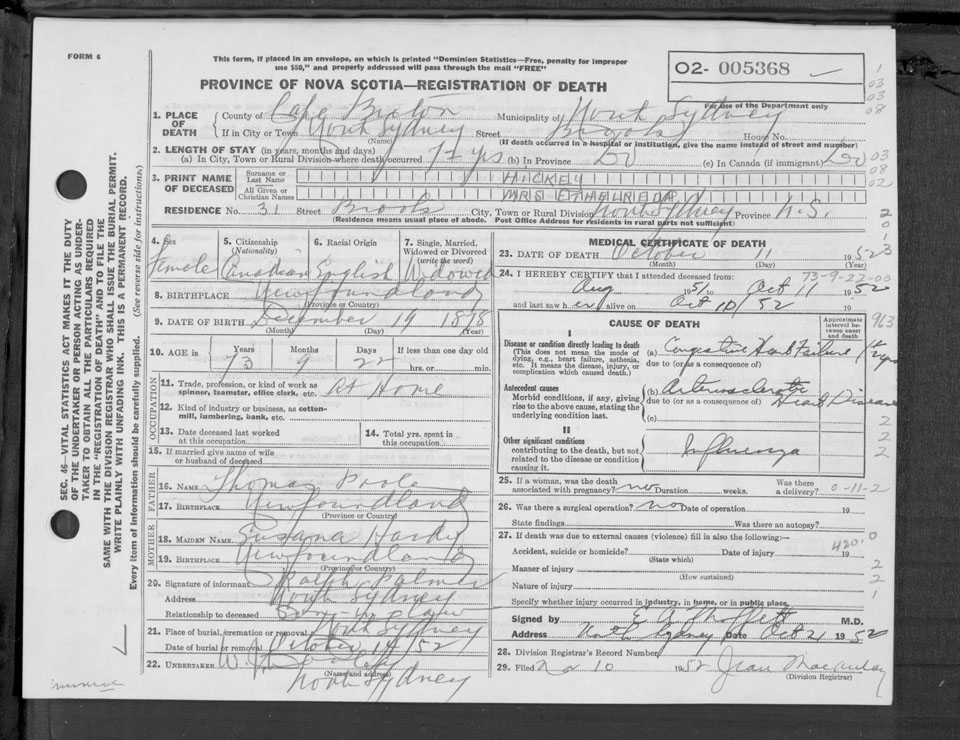 FORM 6
This form, if placed in an envelope, on which is printed "Dominion Statistics—Free, penalty for improper
use $50," and properly addressed will pass through the mail "FREE"
PROVINCE OF NOVA SCOTIA—REGISTRATION OF DEATH
O2- 005368
For use of the Department only
1. PLACE OF DEATH County of Cape Breton Municipality of North Sydney
If in City or Town North Sydney Street Brook House No.
(Name) (If death occurred in a hospital or institution, give the name instead of street and number)
2. LENGTH OF STAY (in years, months and days)
(a) In City, Town or Rural Division where death occurred yrs (b) In Province Do (c) In Canada (if immigrant) Do
3. PRINT NAME OF DECEASED Surname or Last Name HICKEY
All Given or Christian Names MRS ETHELREDA
RESIDENCE No. 31 Street Brook City, Town or Rural Division North Sydney Province N.S.
(Residence means usual place of abode. Post Office Address for residents in rural parts not sufficient)
4. Sex 5. Citizenship (Nationality) 6. Racial Origin 7. Single, Married, Widowed or Divorced (write the word)
Female Canadian English Widowed
8. BIRTHPLACE Newfoundland
(Province or Country)
9. DATE OF BIRTH December 19 1878
(Month) (Day) (Year)
10. AGE in Years Months Days If less than one day old
73 9 22 hrs. or min.
OCCUPATION
11. Trade, profession, or kind of work as spinner, teamster, office clerk, etc. At Home
12. Kind of industry or business, as cotton-mill, lumbering, bank, etc.
13. Date deceased last worked at this occupation
14. Total yrs. spent in this occupation
15. If married give name of wife or husband of deceased
FATHER
16. NAME Thomas Poole
17. BIRTHPLACE Newfoundland
(Province or Country)
MOTHER
18. MAIDEN NAME Susana Hardy
19. BIRTHPLACE Newfoundland
(Province or Country)
20. Signature of informant Ralph Palmer
Address North Sydney
Relationship to deceased Son-in-law
21. Place of burial, cremation or removal North Sydney
Date of burial or removal October 14 / 52
22. UNDERTAKER W.
(Name and address)
North Sydney
MEDICAL CERTIFICATE OF DEATH
23. DATE OF DEATH October 11 1952
(Month) (Day) (Year)
73-9-22-00
24. I HEREBY CERTIFY that I attended deceased from:
Aug 1951 to Oct 11 1952
and last saw her alive on Oct 10/52 19
CAUSE OF DEATH
Approximate interval between onset and death
I
Disease or condition directly leading to death
(This does not mean the mode of dying, e.g., heart failure, asthenia, etc. It means the disease, injury, or complication which caused death.)
(a) Congestive Heart Failure
due to (or as a consequence of)
Antecedent causes
Morbid conditions, if any, giving rise to the above cause, stating the underlying condition last.
(b) Arteriosclerotic Heart Disease
due to (or as a consequence of)
(c)
II
Other significant conditions
contributing to the death, but not related to the disease or condition causing it.
Influenza
25. If a woman, was the death associated with pregnancy? no Duration weeks. Was there a delivery? 0-11-2
26. Was there a surgical operation? no Date of operation 19
State findings Was there an autopsy?
27. If death was due to external causes (violence) fill in also the following:— 420.0
Accident, suicide or homicide? Date of injury 19
(State which)
Manner of injury
(How sustained)
Nature of injury
Specify whether injury occurred in industry, in home, or in public place.
Signed by M.D.
Address North Sydney Date Oct 21 1952
28. Division Registrar's Record Number
29. Filed Nov 10 1952 Jean
(Division Registrar)
SEC. 46—VITAL STATISTICS ACT MAKES IT THE DUTY
OF THE UNDERTAKER OR PERSON ACTING AS UNDER-
TAKER TO OBTAIN ALL THE PARTICULARS REQUIRED
IN THE "REGISTRATION OF DEATH" AND TO FILE THE
SAME WITH THE DIVISION REGISTRAR WHO SHALL ISSUE THE BURIAL PERMIT.
WRITE PLAINLY WITH UNFADING INK. THIS IS A PERMANENT RECORD.
Every item of information should be carefully supplied. (See reverse side for instructions.)
1
03
03
08
03
08
02
2
0
1
3
963
2
2
2
2
2
1